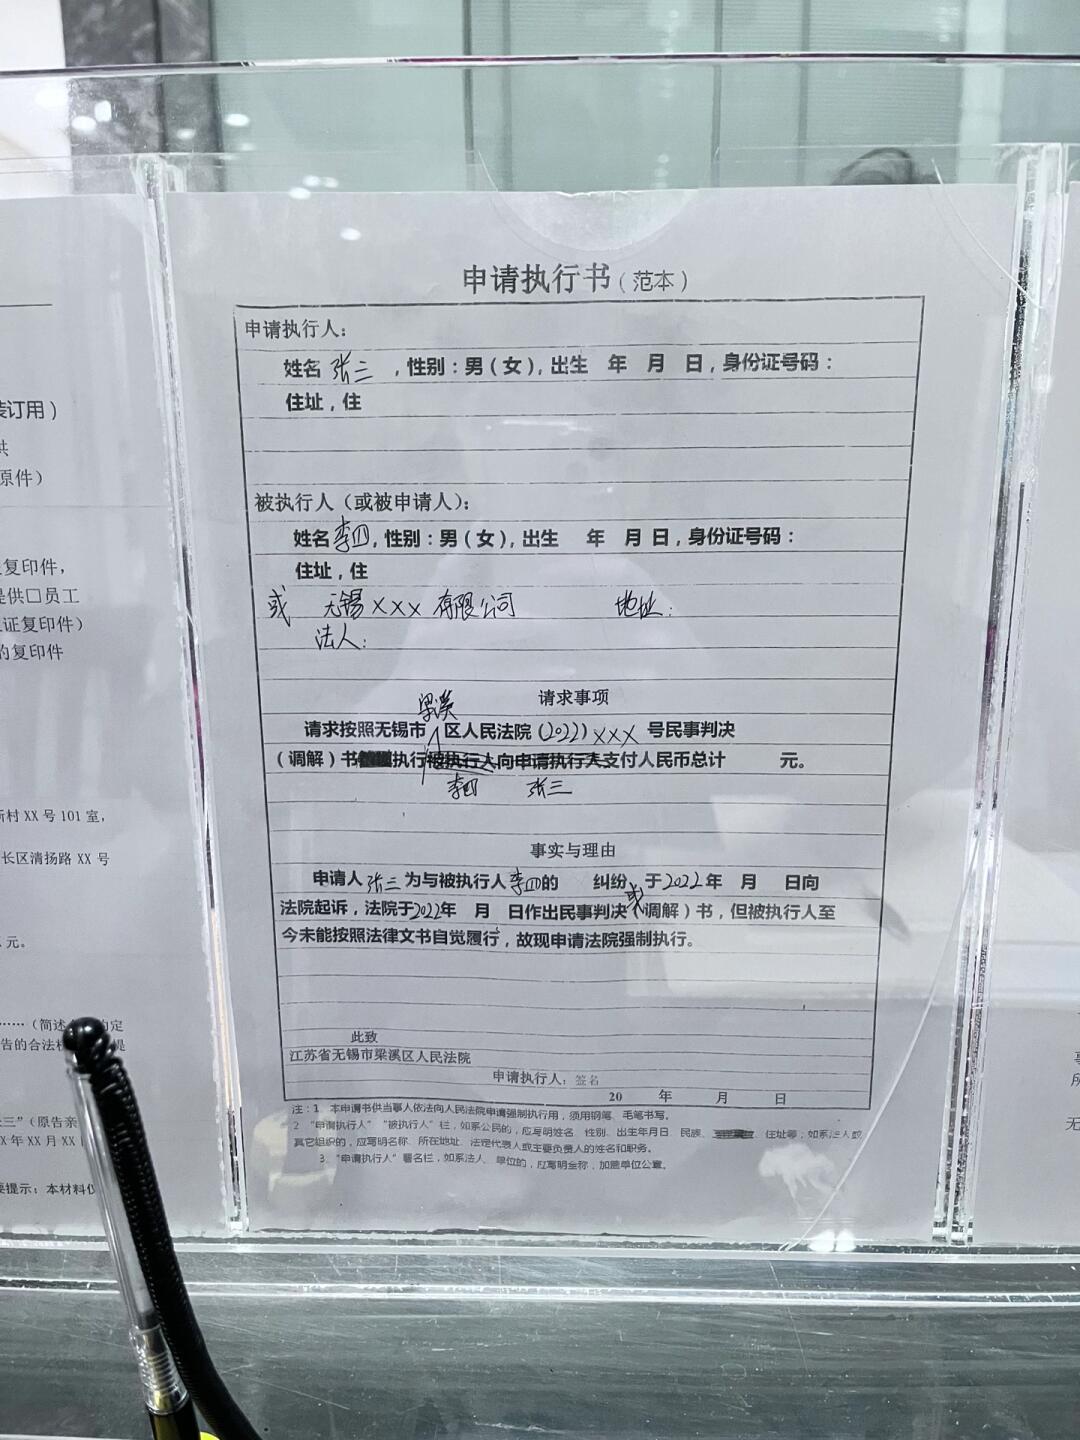 申请执行书（范本）
申请执行人：
姓名 张三 ，性别：男（女），出生 年 月 日，身份证号码：
住址，住
被执行人（或被申请人）：
姓名李四，性别：男（女），出生 年 月 日，身份证号码：
住址，住
或 无锡XXX有限公司 地址：
法人：
请求事项
梁溪
请求按照无锡市 区人民法院（2022）XXX 号民事判决
（调解）书执行被执行人向申请执行人支付人民币总计 元。
李四 张三
事实与理由
申请人张三为与被执行人李四的 纠纷，于2022年 月 日向
法院起诉，法院于2022年 月 日作出民事判决或调解）书，但被执行人至
今未能按照法律文书自觉履行，故现申请法院强制执行。
此致
江苏省无锡市梁溪区人民法院
申请执行人：签名
20 年 月 日
注：1、本申请书供当事人依法向人民法院申请强制执行用，须用钢笔、毛笔书写。
2 “申请执行人”“被执行人”栏，如系公民的，应写明姓名、性别、出生年月日、民族、住址等；如系法人或
其它组织的，应写明名称、所在地址、法定代表人或主要负责人的姓名和职务。
3、“申请执行人”署名栏，如系法人、单位的，应写明全称，加盖单位公章。
装订用）
供
原件）
复印件，
提供口员工
证复印件）
的复印件
新村 XX 号 101 室，
长区清扬路 XX 号
元。
……（简述 的定
告的合法 提
三”（原告亲
X 年 XX 月 XX
要提示：本材料仅